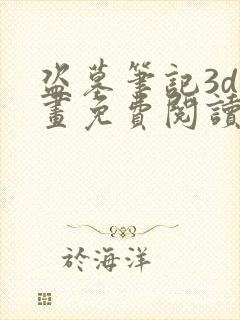 盗墓筆記3d
畫免費閱讀
於海洋